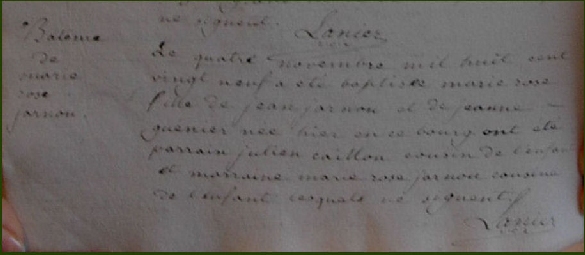 ne signent.
Lanier
Batême
de
marie
rose
jarnou.
Le quatre novembre mil huit cent
vingt neuf a été baptisée marie rose
fille de jean jarnou et de jeanne
guenier née hier en ce bourg ont été
parrain julien caillou cousin de l'enfant
et marraine marie rose jarnou cousine
de l'enfant lesquels ne signent
Lanier